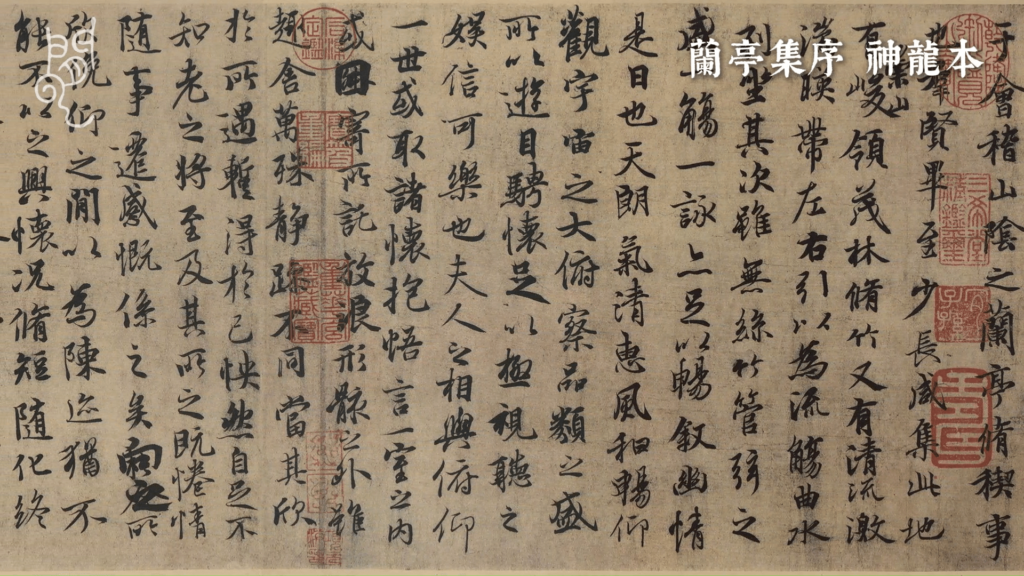 蘭亭集序 神龍本
于會稽山陰之蘭亭脩稧事
也羣賢畢至少長咸集此地
有崇山峻領茂林脩竹又有清流激
湍暎帶左右引以為流觴曲水
列坐其次雖無絲竹管弦之
盛一觴一詠亦足以暢敘幽情
是日也天朗氣清惠風和暢仰
觀宇宙之大俯察品類之盛
所以遊目騁懷足以極視聽之
娛信可樂也夫人之相與俯仰
一世或取諸懷抱悟言一室之內
或因寄所託放浪形骸之外雖
趣舍萬殊靜躁不同當其欣
於所遇暫得於己怏然自足不
知老之將至及其所之既惓情
隨事遷感慨係之矣向之所
欣俛仰之閒以為陳迹猶不
能不以之興懷況脩短隨化終